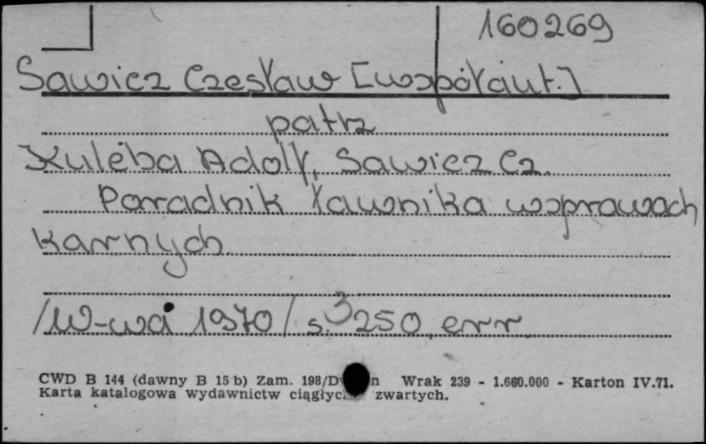 160269
Sawicz Czesław [współaut.]
patrz
Kuleba Adolf, Sawicz Cz.
Poradnik ławnika w sprawach
karnych
/W-wa 1970/ s. 250, err
CWD B 144 (dawny B 15 b) Zam. 198/D n Wrak 239 - 1.660.000 - Karton IV.71.
Karta katalogowa wydawnictw ciągłyc zwartych.